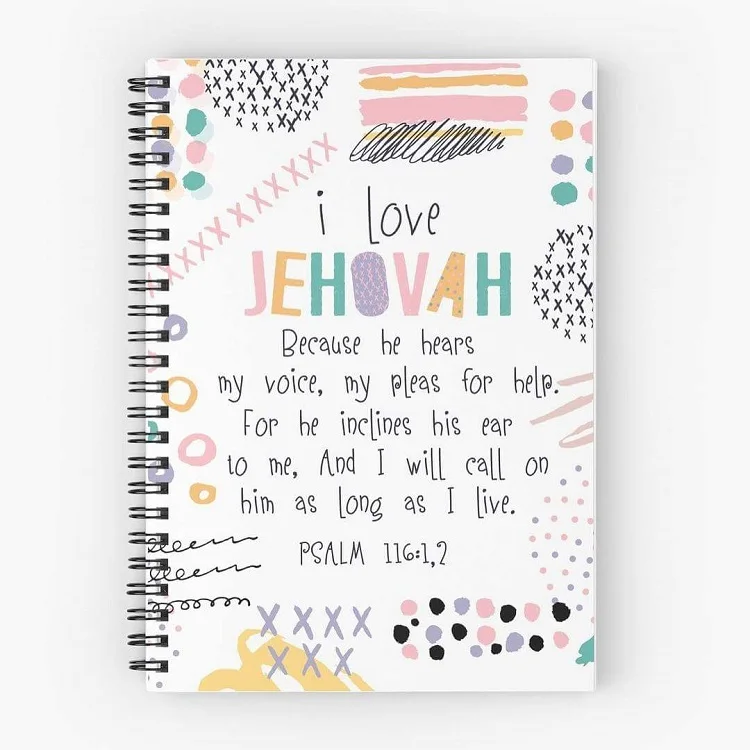 i love
JEHOVAH
Because he hears
my voice, my pleas for help.
For he inclines his ear
to me, And I will call on
him as long as I live.
PSALM 116:1,2